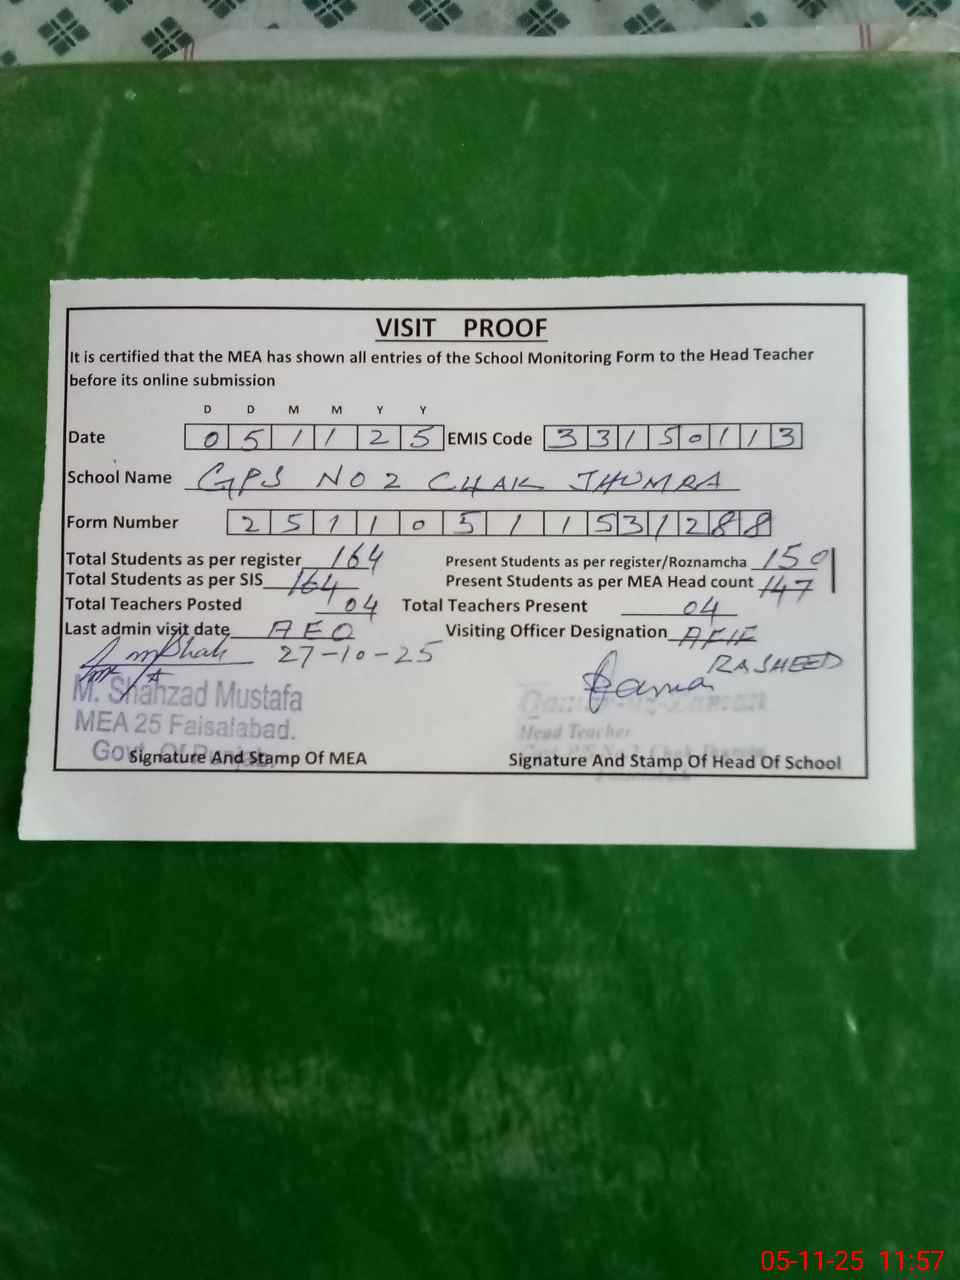 VISIT PROOF
It is certified that the MEA has shown all entries of the School Monitoring Form to the Head Teacher
before its online submission
D D M M Y Y
Date 0 5 1 1 2 5 EMIS Code 3 3 1 5 0 1 1 3
School Name GPS NO 2 CHAK JHUMRA
Form Number 2 5 1 1 0 5 1 1 5 3 1 2 8 8
Total Students as per register 164 Present Students as per register/Roznamcha 150
Total Students as per SIS 164 Present Students as per MEA Head count 147
Total Teachers Posted 04 Total Teachers Present 04
Last admin visit date AEO Visiting Officer Designation
27-10-25 RASHEED
M. Shahzad Mustafa
MEA 25 Faisalabad. Head Teacher
Govt. Of Punjab.
Signature And Stamp Of MEA Signature And Stamp Of Head Of School
05-11-25 11:57